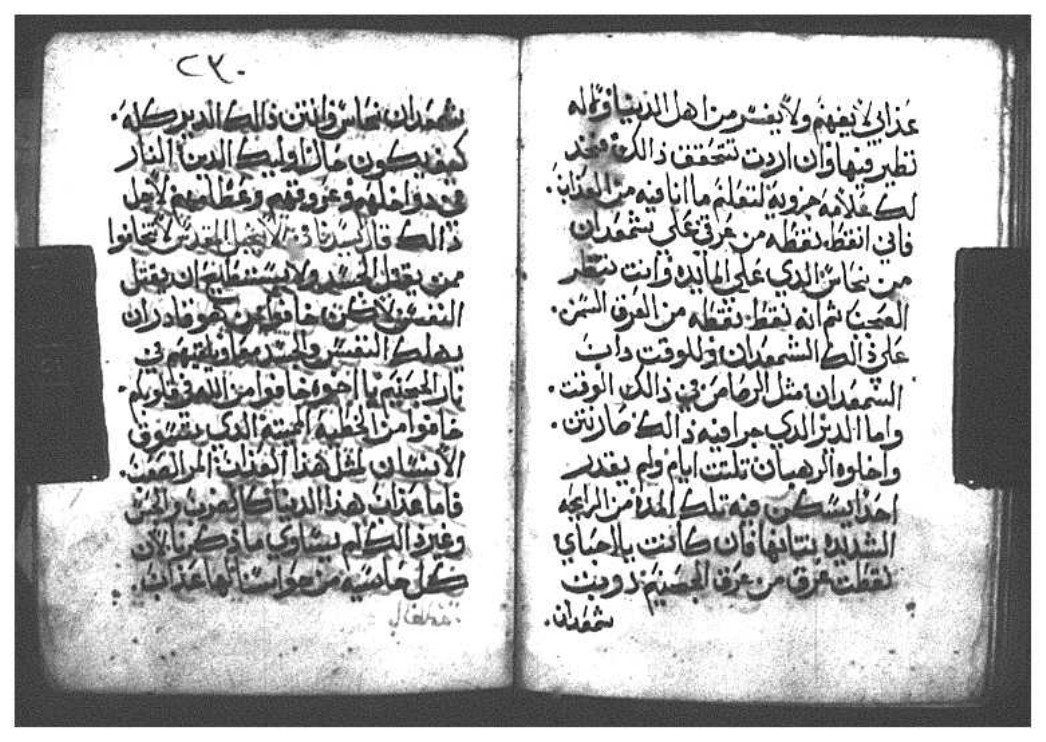 عذابي لا يفهم ولا يفسر من اهل الدنيا وله
نظير فيها وان اردت تتحقق ذالك فخد
لك علامه جزويه لتعلم ما انا فيه من العذاب.
فاني انقط نقطه من عرقي علي شمعدان
من نحاس الدي علي المايده وانت تنظر
العجب ثم انه نقط نقطه من العرق السخن.
علي دالك الشمعدان وللوقت داب
الشمعدان مثل الرصاص في ذالك الوقت.
واما الدير الدي جرا فيه ذالك صار نتن.
واخلوه الرهبان تلتت ايام ولم يقدر
احد ايسكن فيه تلك المده من الرايحه
الشديده نتانها فان كانت يا احباي
نقطت عرق من عرق الجحيم دوبت
شمعدان.
٢٣٠
شمعدان نحاس وانتن ذالك الدير كله.
كيف يكون حال اوليك الدين النار
في دواخلهم وعروقهم وعظامهم لاجل
ذالك قال سيدنا في الانجيل المقدس لا تخافوا
ممن يقتل الجسد ولا يستطيع ان يقتل
النفس لاكن خافوا ممن هو قادر ان
يهلك النفس والجسد معا ويلقيهم في
نار الجحيم يا اخوه خافوا من الله في قلوبكم.
خافوا من الخطيه المميته الدي يقتسوق
الانسان لمثل هدا العذاب المر الصعب.
فاما عذاب هذا الدنيا كالضرب والحزن
وغير ذالك لم يساوي ما ذكرنا لان
كل حاسيه من حواسنا لها عذاب.